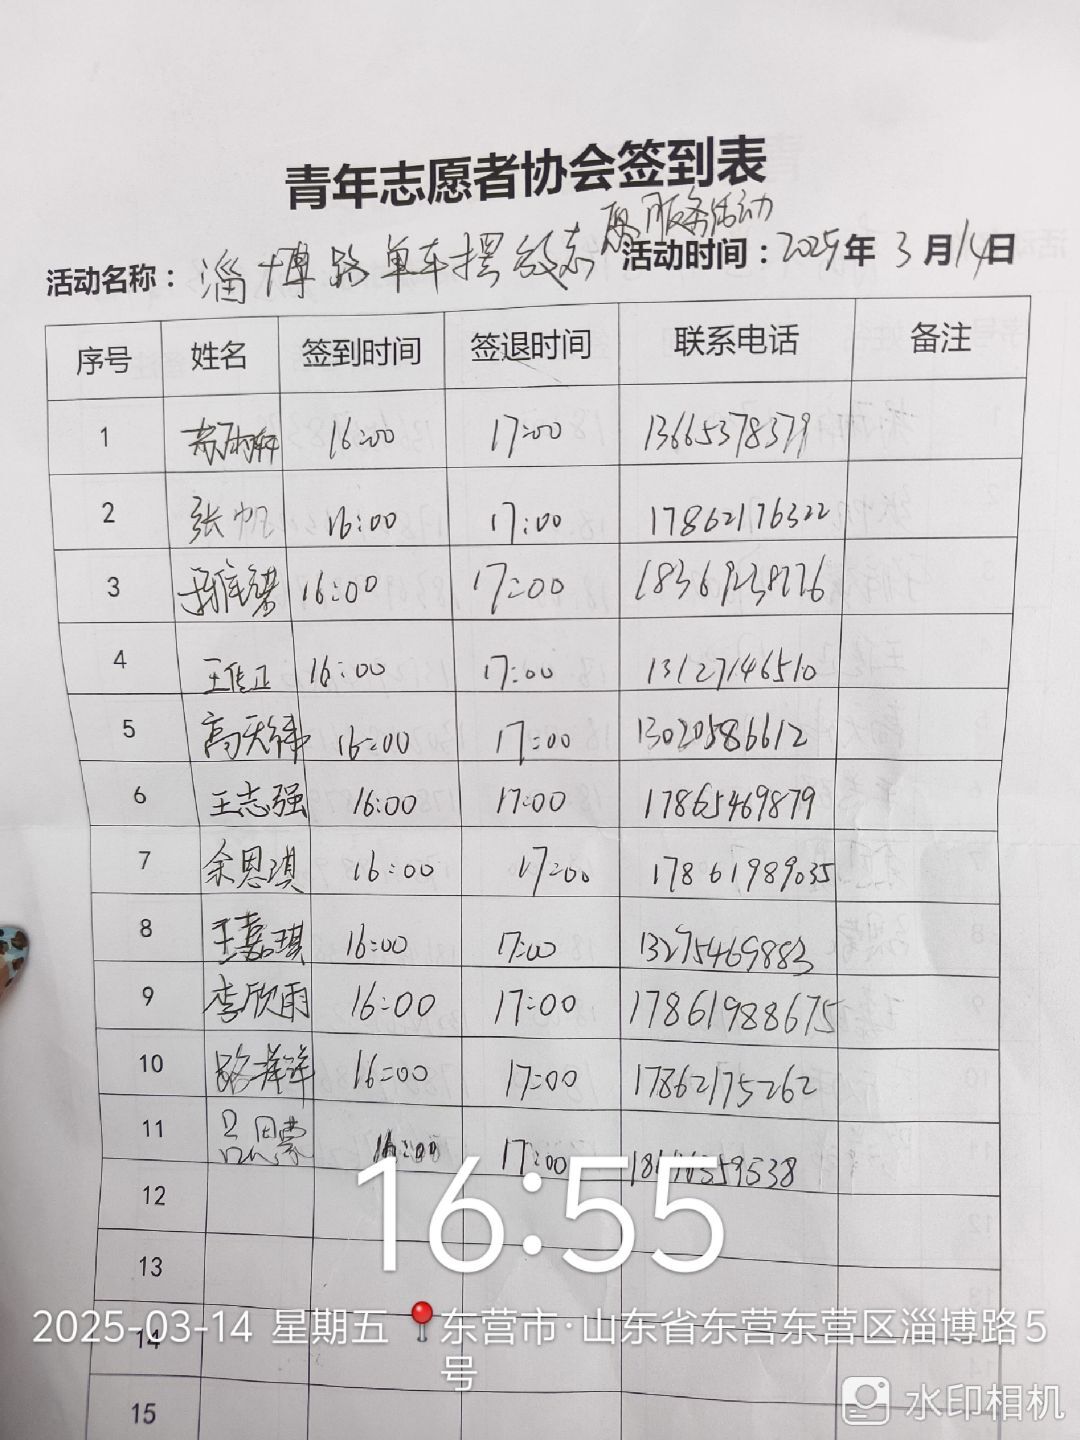 青年志愿者协会签到表
愿服务活动
活动名称：淄博路单车摆放志 活动时间：2025年3月14日
序号 姓名 签到时间 签退时间 联系电话 备注
1 16:00 17:00 13665378379
2 张帆 16:00 17:00 17862176322
3 16:00 17:00
4 王传正 16:00 17:00 13127146510
5 高天纬 16:00 17:00 13020586612
6 王志强 16:00 17:00 17865469879
7 余恩琪 16:00 17:00 17861989035
8 王嘉琪 16:00 17:00 13275469883
9 李欣雨 16:00 17:00 17861988675
10 16:00 17:00 17862175262
11 吕思蒙 16:00 17:00
12
16:55
13
2025-03-14 星期五 东营市·山东省东营东营区淄博路5号
14
水印相机
15